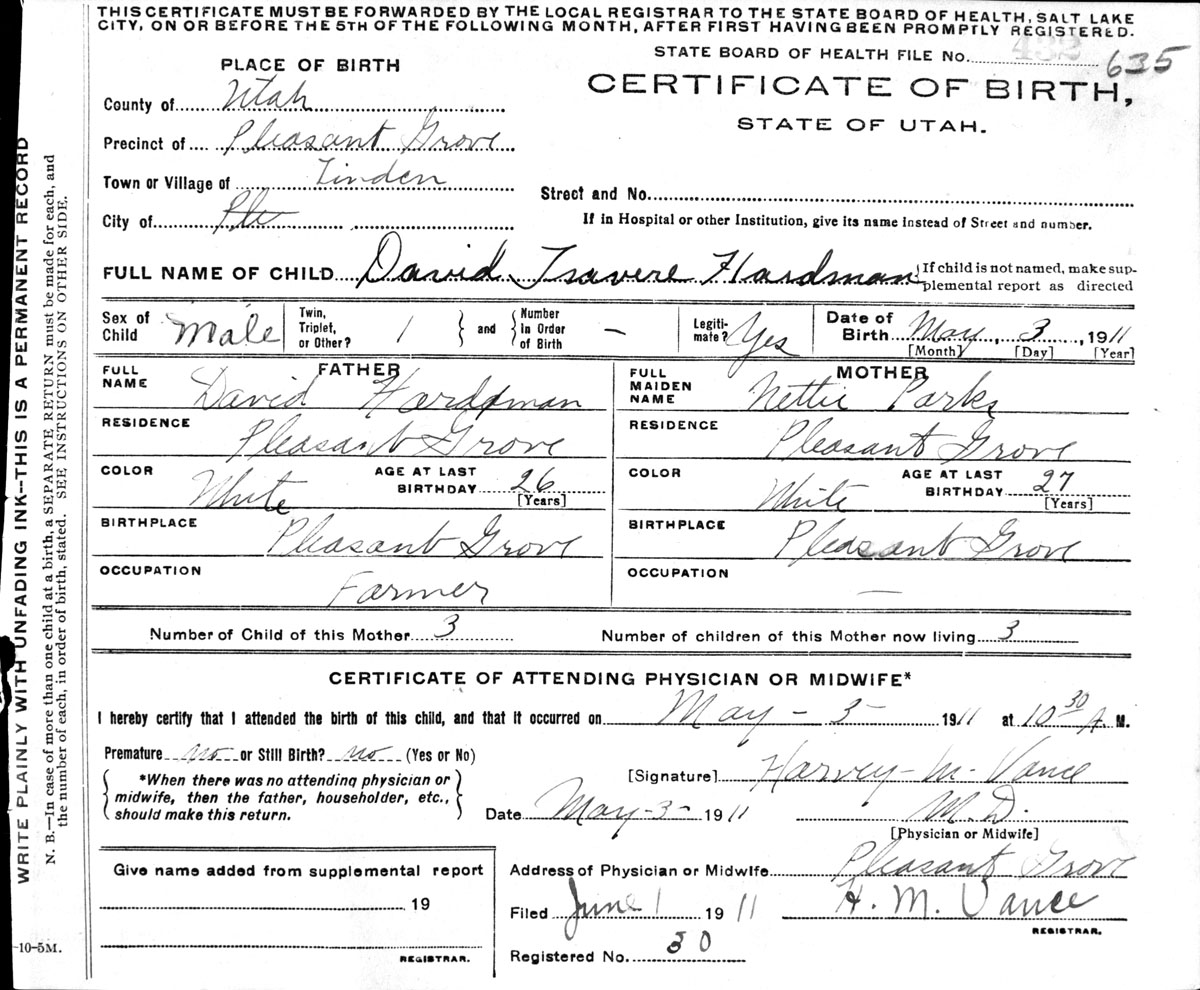 THIS CERTIFICATE MUST BE FORWARDED BY THE LOCAL REGISTRAR TO THE STATE BOARD OF HEALTH, SALT LAKE
CITY, ON OR BEFORE THE 5TH OF THE FOLLOWING MONTH, AFTER FIRST HAVING BEEN PROMPTLY REGISTERED.
STATE BOARD OF HEALTH FILE No. 432 635
PLACE OF BIRTH
CERTIFICATE OF BIRTH,
STATE OF UTAH.
County of Utah
Precinct of Pleasant Grove
Town or Village of Linden
Street and No.
City of Ple
If in Hospital or other Institution, give its name instead of Street and number.
FULL NAME OF CHILD David Travere Hardman
If child is not named, make sup-
plemental report as directed
Sex of Child Male
Twin, Triplet, or Other? 1
and
Number in Order of Birth –
Legiti-mate? Yes
Date of Birth May, 3, 1911
[Month] [Day] [Year]
FATHER
FULL NAME David Hardman
RESIDENCE Pleasant Grove
COLOR White AGE AT LAST BIRTHDAY 26
[Years]
BIRTHPLACE Pleasant Grove
OCCUPATION Farmer
MOTHER
FULL MAIDEN NAME Nettie Parks
RESIDENCE Pleasant Grove
COLOR White AGE AT LAST BIRTHDAY 27
[Years]
BIRTHPLACE Pleasant Grove
OCCUPATION —
Number of Child of this Mother 3 Number of children of this Mother now living 3
CERTIFICATE OF ATTENDING PHYSICIAN OR MIDWIFE*
I hereby certify that I attended the birth of this child, and that it occurred on May – 3 – 1911 at 10 30 A. M.
Premature no or Still Birth? no (Yes or No)
*When there was no attending physician or
midwife, then the father, householder, etc.,
should make this return.
[Signature] Harvey M. Vance
Date May-3- 1911 M.D.
[Physician or Midwife]
Give name added from supplemental report
19
REGISTRAR.
Address of Physician or Midwife Pleasant Grove
Filed June 1 1911 H. M. Vance
REGISTRAR.
Registered No. 30
WRITE PLAINLY WITH UNFADING INK--THIS IS A PERMANENT RECORD
N. B.—In case of more than one child at a birth, a SEPARATE RETURN must be made for each, and
the number of each, in order of birth, stated. SEE INSTRUCTIONS ON OTHER SIDE.
-10-5M.